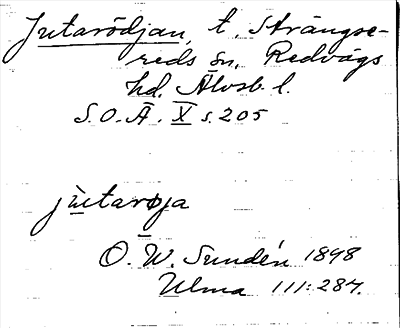 Jutarödjan, t. Strängse-
reds sn, Redvägs
hd. Älvsb. l.
S.O.Ä. X s. 205
jùtarøja
O. W. Sundén 1898
Ulma 111:287.